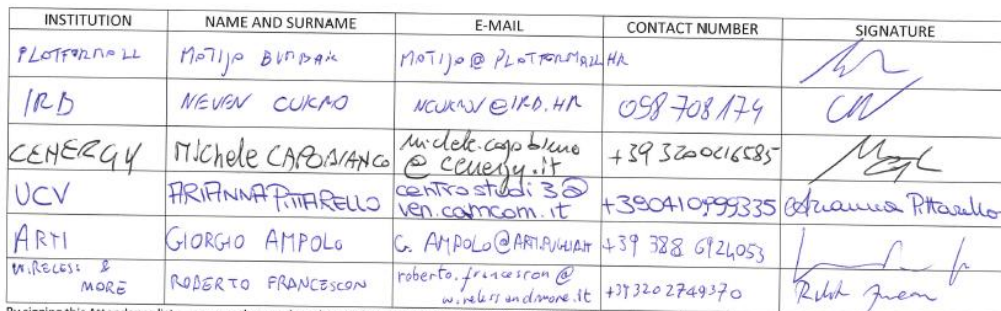 INSTITUTION NAME AND SURNAME E-MAIL CONTACT NUMBER SIGNATURE
PLATFORMALL MATIJA
IRB NEVEN CUKROV NCUKROV@IRB.HR 098 708 174
CENERGY MICHELE CAPOBIANCO michele.capobianco
@ cenergy.it +39 3200216585
UCV ARIANNA PITTARELLO centrostudi3@
ven.camcom.it +390410999335 Arianna Pittarello
ARTI GIORGIO AMPOLO G.AMPOLO@ARTI.PUGLIA.IT +39 388 6924053
WIRELESS &
MORE ROBERTO FRANCESCON roberto.francescon@
wirelessandmore.it +393202749370